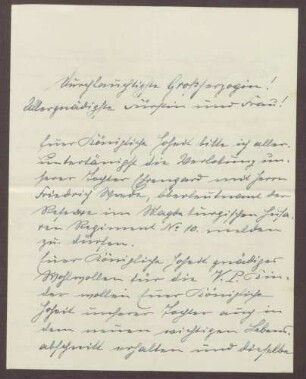 Durchlauchtigste Großherzogin!
Allergnädigste Fürstin und Frau!
Eurer Königliche Hoheit bitte ich aller-
unterthänigst die Verlobung un-
serer Tochter Ehrengard mit Herrn
Friedrich Wrede, Oberleutnant der
Reserve im Magdeburgischen Husa-
ren Regiment No 10. melden
zu dürfen.
Eurer Königliche Hoheit gnädiges
Wohlwollen für die
der wollen Eure Königliche
Hoheit unserer Tochter auch in
dem neuen wichtigen Lebens-
abschnitt erhalten und dieselbe